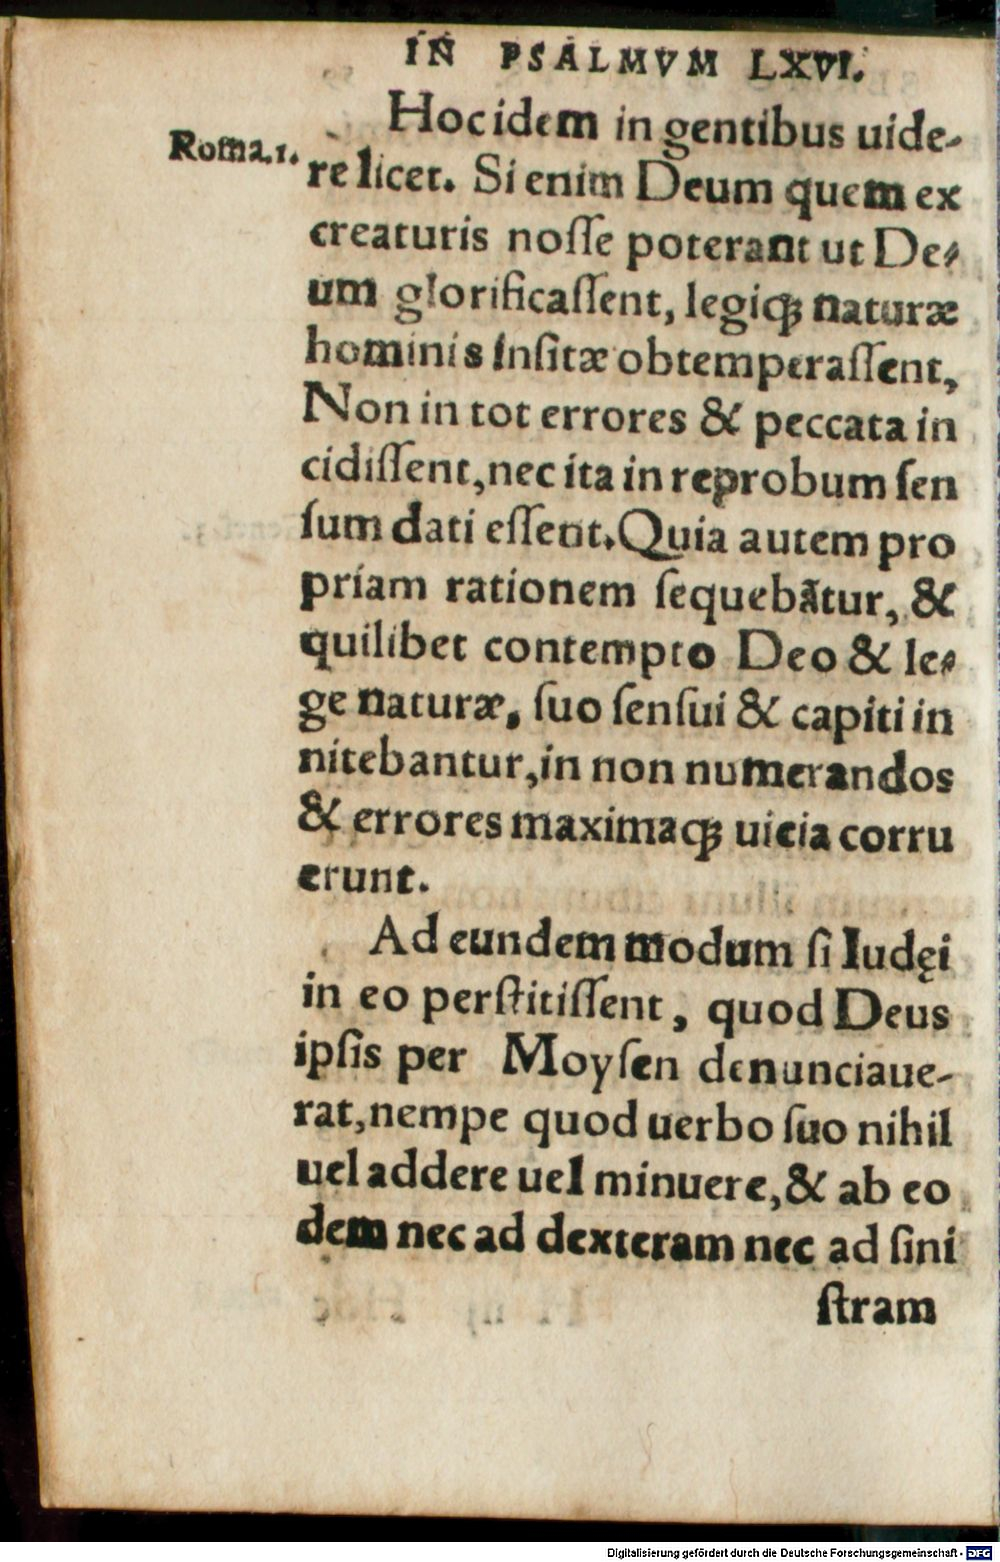 IN PSALMVM LXVI.
Hoc idem in gentibus uide-
Roma.1.
re licet. Si enim Deum quem ex
creaturis nosse poterant ut De-
um glorificassent, legiq́; naturæ
hominis insitæ obtemperassent,
Non in tot errores & peccata in
cidissent, nec ita in reprobum sen
sum dati essent. Quia autem pro
priam rationem sequebãtur, &
quilibet contempto Deo & le-
ge naturæ, suo sensui & capiti in
nitebantur, in non numerandos
& errores maximaq́; uicia corru
erunt.
Ad eundem modum si Iudęi
in eo perstitissent, quod Deus
ipsis per Moysen denunciaue-
rat, nempe quod uerbo suo nihil
uel addere uel minuere, & ab eo
dem nec ad dexteram nec ad sini
stram
Digitalisierung gefördert durch die Deutsche Forschungsgemeinschaft - DFG